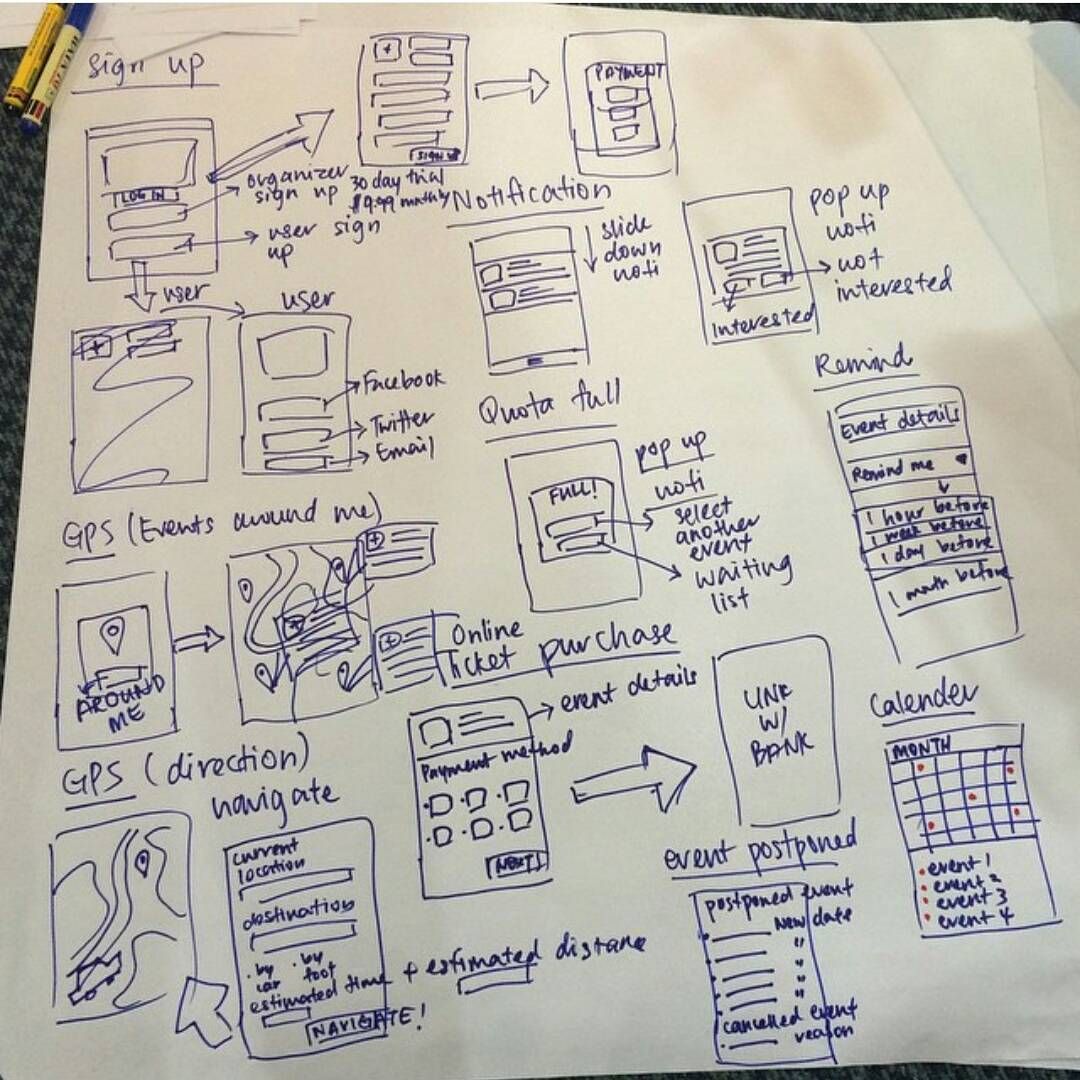 sign up
LOG IN
organizer
sign up
user sign
up
SIGN UP
30 day trial
$9.99 monthly
PAYMENT
user
user
Facebook
Twitter
Email
Notification
slide
down
noti
pop up
noti
not
interested
interested
Quota full
FULL!
pop up
noti
select
another
event
waiting
list
Remind
Event details
Remind me
1 hour before
1 week before
1 day before
1 month before
GPS (Events around me)
AROUND
ME
Online
Ticket purchase
event details
Payment method
NEXT
LINK
W/
BANK
Calender
MONTH
event 1
event 2
event 3
event 4
GPS (direction)
navigate
current
location
destination
. by car . by foot
estimated time + estimated distane
NAVIGATE!
event postponed
postponed event
new date
"
"
"
"
cancelled event
reason